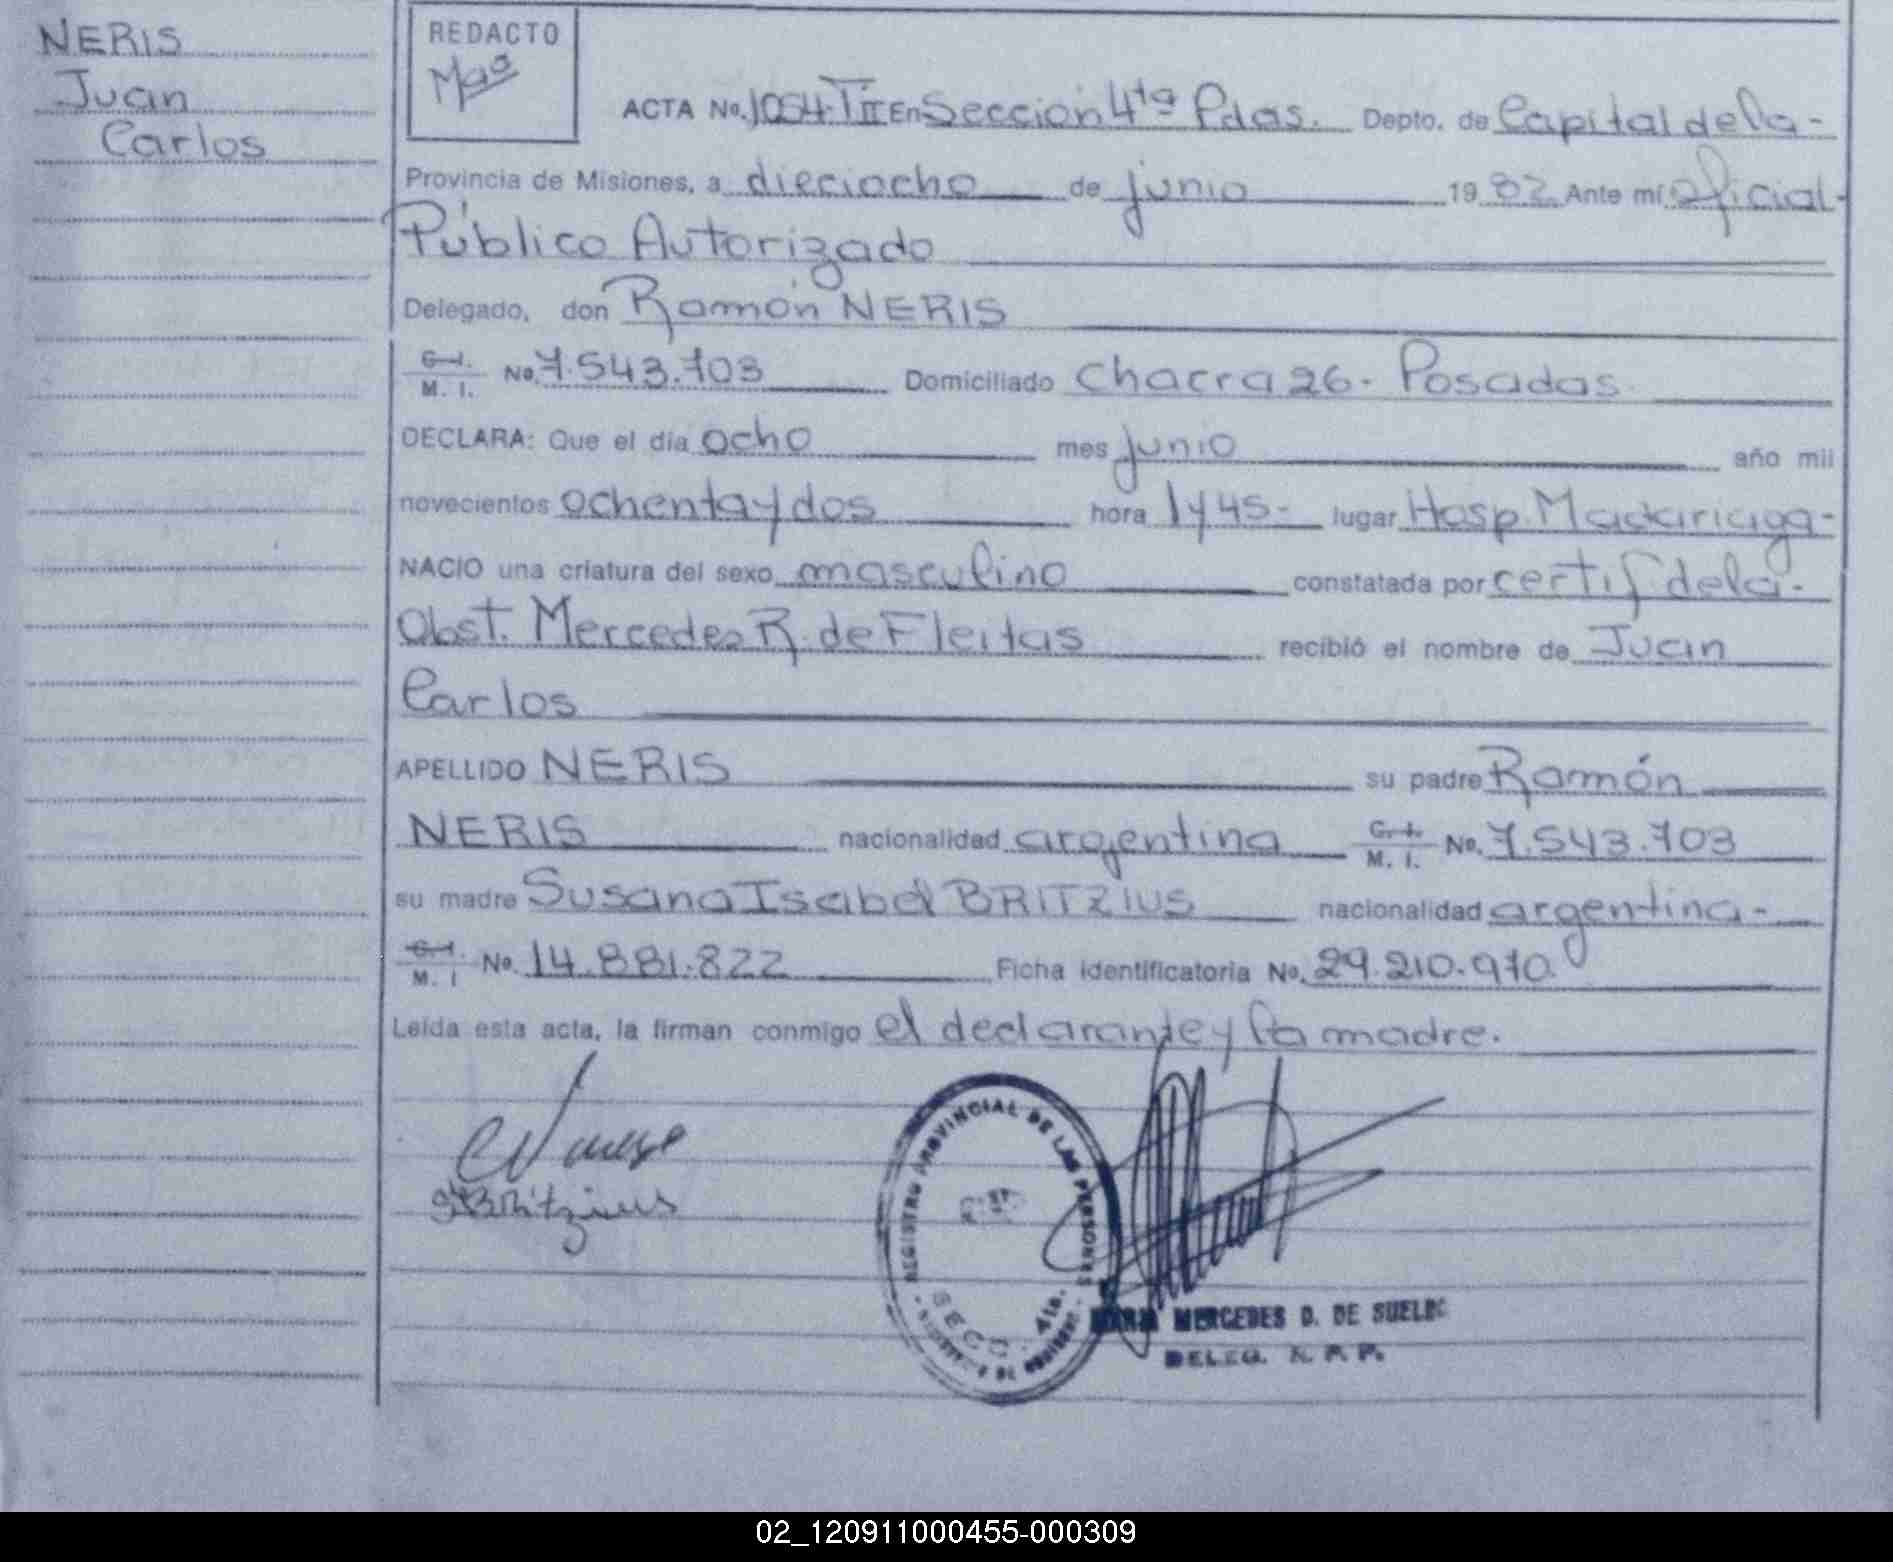 NERIS
Juan
Carlos
REDACTO
ACTA No. 1054-T II En Sección 4ta Pdas. Depto. de Capital de la-
Provincia de Misiones, a dieciocho de junio 1982. Ante mí Oficial-
Público Autorizado
Delegado, don Ramón NERIS
C. I. M. I. No. 7.543.703 Domiciliado Chacra 26- Posadas
DECLARA: Que el día ocho mes junio año mil
novecientos ochenta y dos hora 1 y 45- lugar Hosp. Madariaga-
NACIO una criatura del sexo masculino constatada por certif de la-
Obst. Mercedes R. de Fleitas recibió el nombre de Juan
Carlos
APELLIDO NERIS su padre Ramón
NERIS nacionalidad argentina C. I. M. I. No. 7.543.703
su madre Susana Isabel BRITZIUS nacionalidad argentina-
C. I. M. I No. 14.881.822 Ficha identificatoria No. 29.210.970
Leída esta acta, la firman conmigo el declarante y la madre.
Britzius
REGISTRO PROVINCIAL DE LAS PERSONAS
SECC. 4ta.
MERCEDES D. DE
DELEG. R. P. P.
02_120911000455-000309